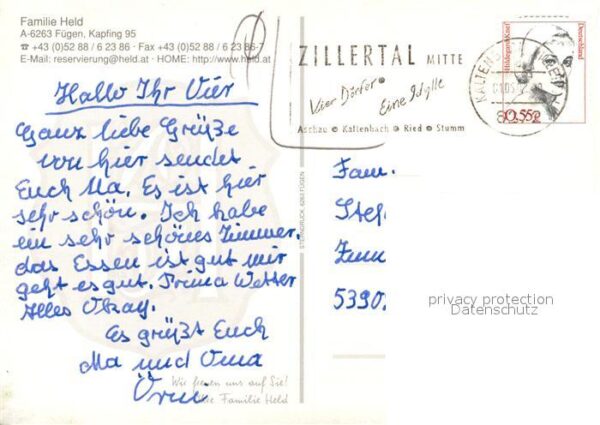 Familie Held
A-6263 Fügen, Kapfing 95
☎ +43 (0)52 88 / 6 23 86 · Fax +43 (0)52 88 / 6 23 86-7
E-Mail: reservierung@held.at · HOME: http://www.held.at
Hallo Ihr Vier
Ganz liebe Grüße
von hier sendet
Euch Ma. Es ist hier
sehr schön. Ich habe
ein sehr schönes Zimmer.
das Essen ist gut mir
geht es gut. Prima Wetter
Alles Okay.
Es grüßt Euch
Ma und Oma
Wir freuen uns auf Sie!
Ihre Familie Held
STERNDRUCK, 6263 FÜGEN
ZILLERTAL MITTE
Vier Dörfer
Eine Idylle
Aschau Kaltenbach Ried Stumm
Hildegard Knef
Deutschland
0,55€
Fam.
Stef
539
privacy protection
Datenschutz